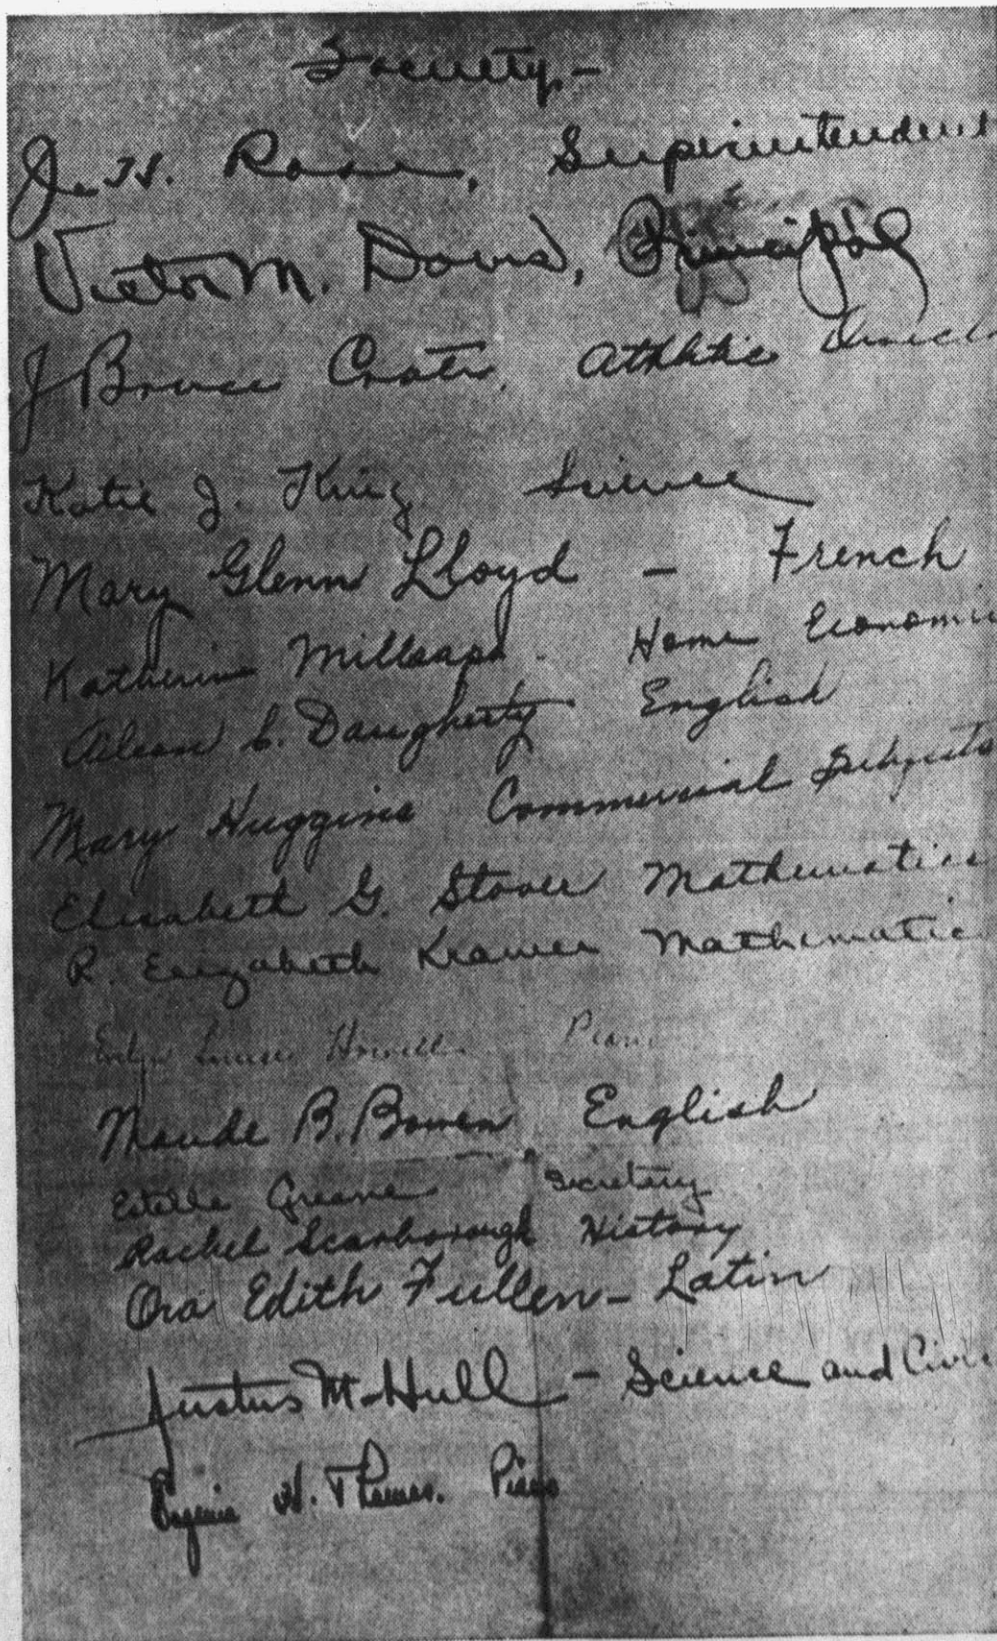 Society -
J. H. Rose, Superintendent
Victor M. Davis, Principal
J Bruce Crater, Athletic Direct
Katie J. King Science
Mary Glenn Lloyd - French
Katherine Millsaps - Home Economic
Aileen L. Daugherty English
Mary Huggins Commercial Subjects
Elisabeth G. Stover Mathematics
R. Elizabeth Kramer Mathematic
Evelyn Louise Howell Piano
Maude B. Bowen English
Estelle Greene Secretary
Rachel Scarborough History
Ora Edith Fullen - Latin
Justus M. Hull - Science and Civic
H. Thomas. Piano